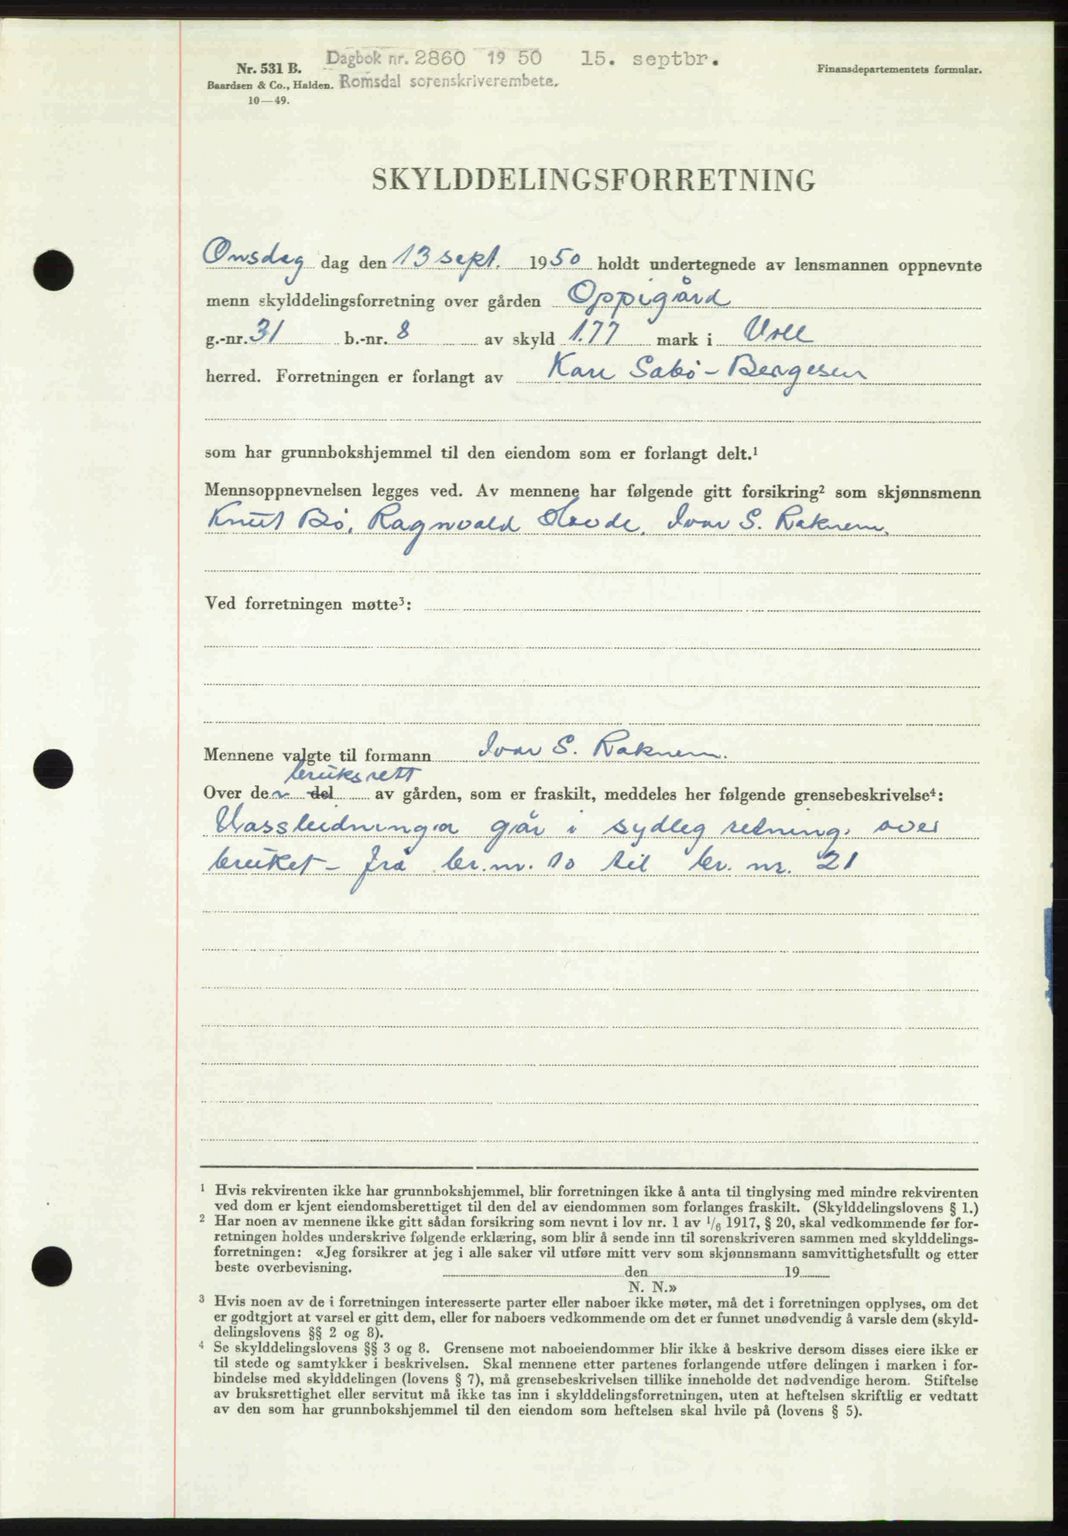 Nr. 531 B.
Baardsen & Co., Halden.
10—49.
Dagbok nr. 2860 19 50 15. septbr.
Romsdal sorenskriverembete.
Finansdepartementets formular.
SKYLDDELINGSFORRETNING
Onsdag dag den 13 sept. 1950 holdt undertegnede av lensmannen oppnevnte
menn skylddelingsforretning over gården Oppigård
g.-nr. 31 b.-nr. 8 av skyld 1.77 mark i Voll
herred. Forretningen er forlangt av Kari Sabø - Bergesen
som har grunnbokshjemmel til den eiendom som er forlangt delt.¹
Mennsoppnevnelsen legges ved. Av mennene har følgende gitt forsikring² som skjønnsmenn
Knut Bø, Ragnvald Ivar S. Raknem.
Ved forretningen møtte³:
Mennene valgte til formann Ivar S. Raknem.
bruksrett
Over den del av gården, som er fraskilt, meddeles her følgende grensebeskrivelse⁴:
Vassleidninga går i sydleg retning over
bruket - frå br.nr. 10 til br. nr. 21
¹ Hvis rekvirenten ikke har grunnbokshjemmel, blir forretningen ikke å anta til tinglysing med mindre rekvirenten
ved dom er kjent eiendomsberettiget til den del av eiendommen som forlanges fraskilt. (Skylddelingslovens § 1.)
² Har noen av mennene ikke gitt sådan forsikring som nevnt i lov nr. 1 av 1/6 1917, § 20, skal vedkommende før for-
retningen holdes underskrive følgende erklæring, som blir å sende inn til sorenskriveren sammen med skylddelings-
forretningen: «Jeg forsikrer at jeg i alle saker vil utføre mitt verv som skjønnsmann samvittighetsfullt og etter
beste overbevisning. den 19
N. N.»
³ Hvis noen av de i forretningen interesserte parter eller naboer ikke møter, må det i forretningen opplyses, om det
er godtgjort at varsel er gitt dem, eller for naboers vedkommende om det er funnet unødvendig å varsle dem (skyld-
delingslovens §§ 2 og 8).
⁴ Se skylddelingslovens §§ 3 og 8. Grensene mot naboeiendommer blir ikke å beskrive dersom disses eiere ikke er
til stede og samtykker i beskrivelsen. Skal mennene etter partenes forlangende utføre delingen i marken i for-
bindelse med skylddelingen (lovens § 7), må grensebeskrivelsen tillike inneholde det nødvendige herom. Stiftelse
av bruksrettighet eller servitut må ikke tas inn i skylddelingsforretningen, uten at heftelsen skriftlig er vedtatt
av den som har grunnbokshjemmel til den eiendom som heftelsen skal hvile på (lovens § 5).